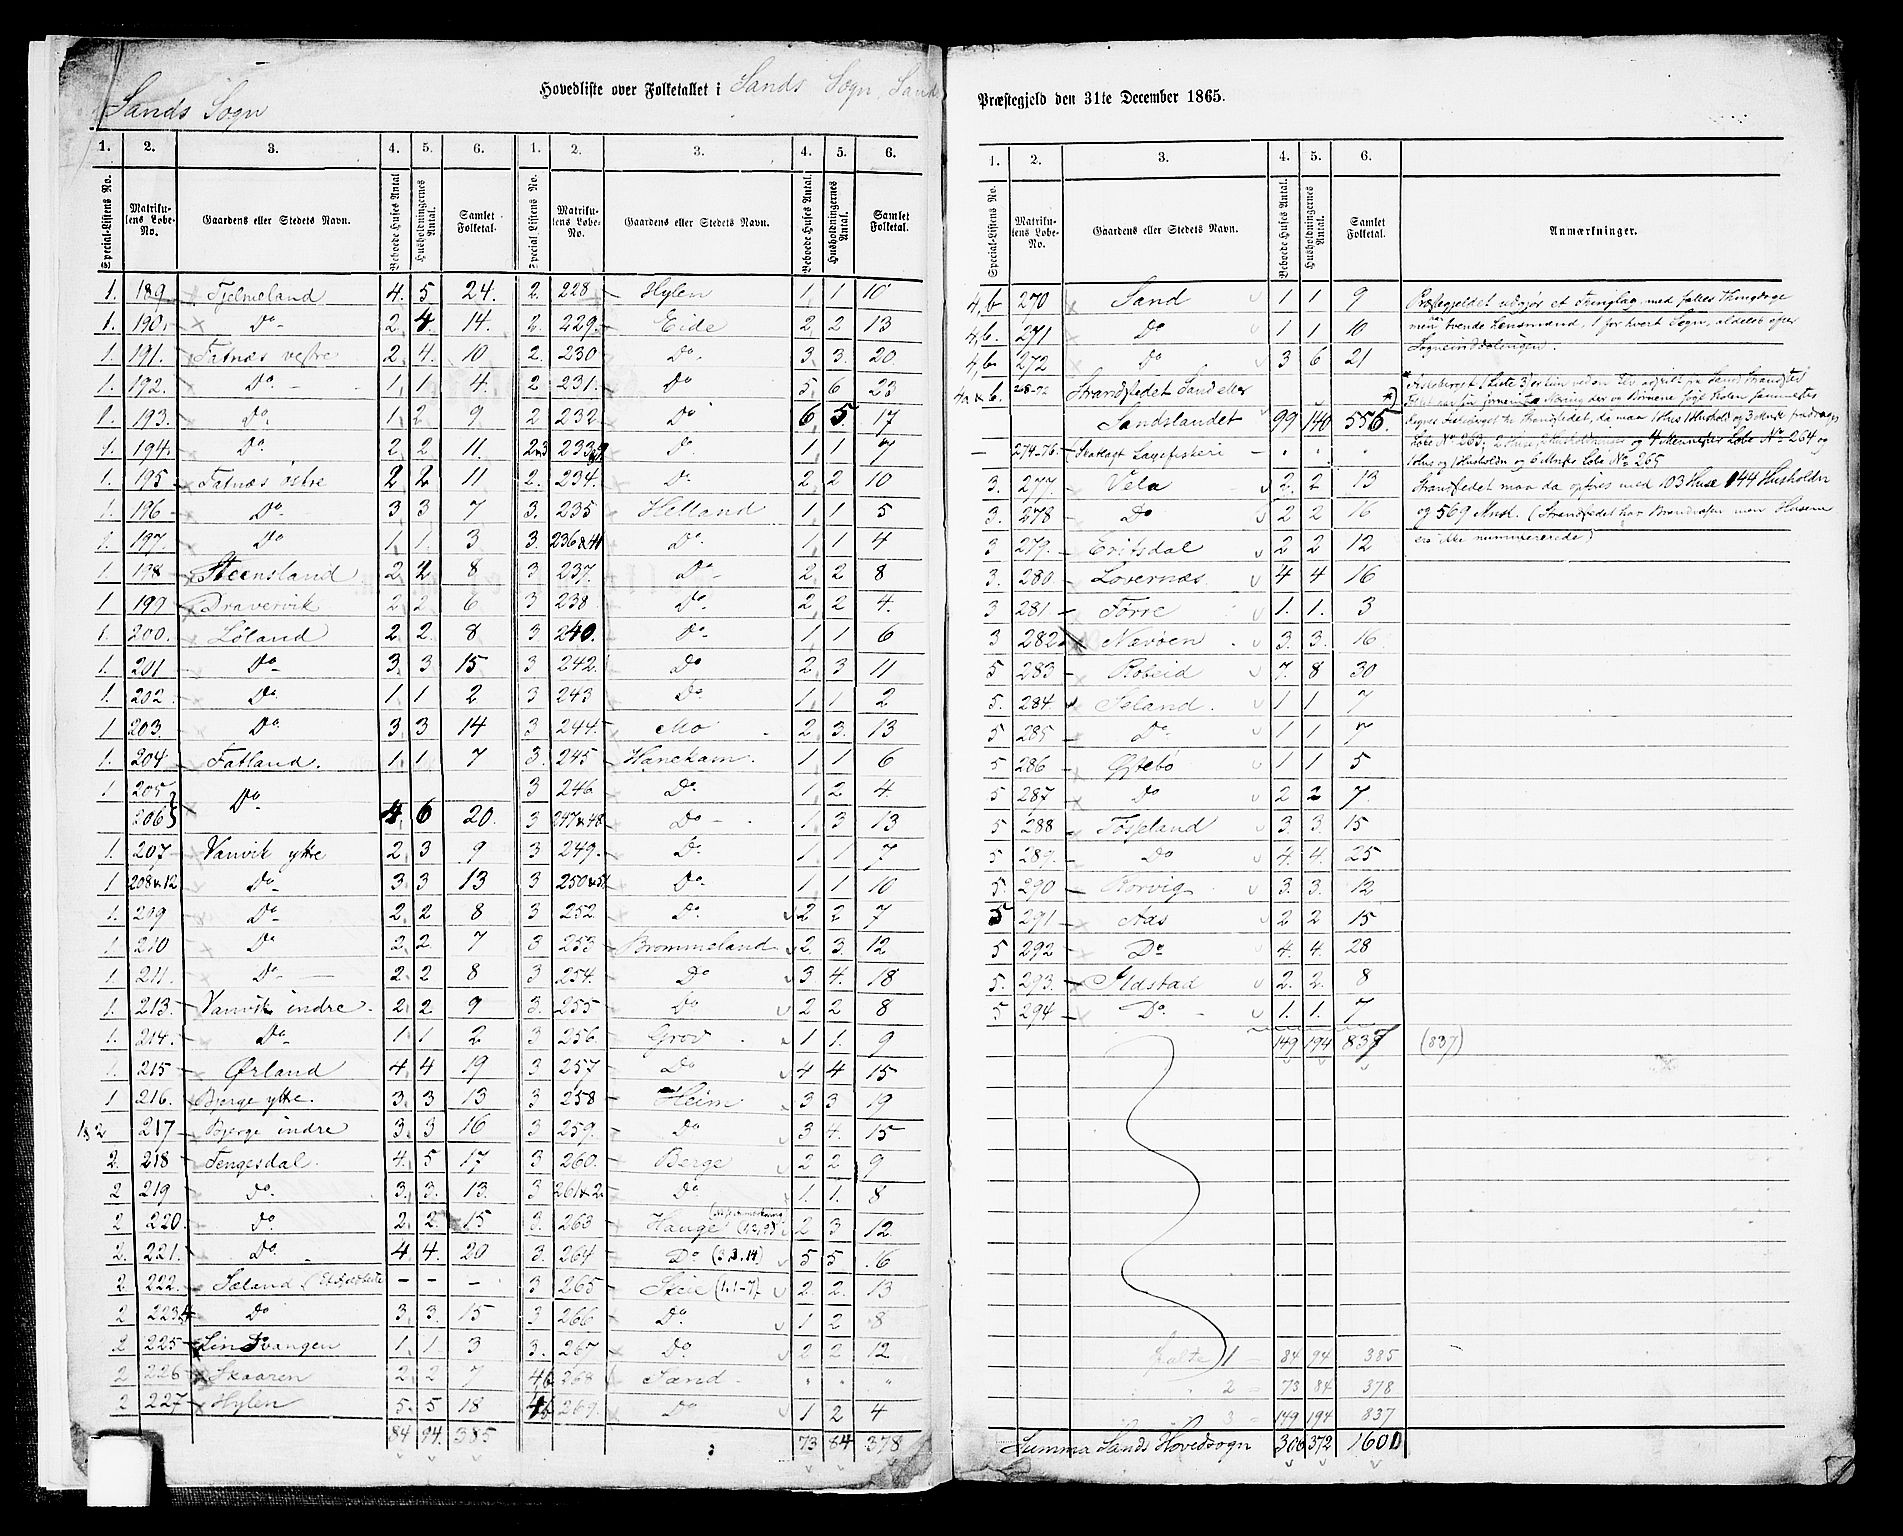 Sands Sogn
Hovedliste over Folketallet i Sands Sogn, Sand
Præstegjeld den 31te December 1865.
1. 2. 3. 4. 5. 6. 1. 2. 3. 4. 5. 6.
Special-Listens No. Matrikulens Løbe-No. Gaardens eller Stedets Navn. Beboede Huses Antal Husholdningernes Antal. Samlet Folketal. Special Listens No. Matrikulens Løbe-No. Gaardens eller Stedets Navn. Beboede Huses Antal. Husholdningernes Antal. Samlet Folketal.
1. 189. Fjelmeland 4. 5 24.
1. 190. Do 2. 4 14.
1. 191. Fatnæs vestre 2. 4. 10
1. 192. Do 1. 1 4.
1. 193. Do. 1. 2 9
1 194. Do. 2 2 11.
1. 195 Fatnæs østre 2 2 11
1 196 Do 3 3 7
1. 197. Do 1. 1. 3
1 198 Steensland 2. 2 8
1 199 Dravervik 2 2 6
1. 200. Løland 2 2. 8
1. 201 Do 3. 3 15
1. 202 Do 1. 1 2
1 203. Do. 3 3 14
1. 204. Fatland. 1. 1 7
1 205
206 Do 4. 6 20.
1. 207 Vanvik ytre 2. 3 9
1 208 & 12 Do 3. 3 13
1. 209 Do 2. 2 8
1. 210 Do 2. 2 7
1. 211. Do 2. 2 8
1. 213. Vanvik indre 2. 2 9
1. 214. Do 1. 1 2
1. 215 Ørland 4. 4 19
1 216. Bjerge ytre. 3. 3 13
1 & 2 217 Bjerge indre 3. 3 16
2. 218 Fengesdal. 4. 5 17
2 219 do. 3. 3. 13.
2 220. do. 2. 2. 15
2. 221. Do. 4. 4. 20
2 222. Sæland - - -
2 223 & 4 Do 3. 3. 15
2 225 Lindvangen 1. 1 3
2 226 Skaaren 2 2 7
2 227 Hylen 5. 5 18
84 94. 385
2. 228 Hylen 1. 1 10
2. 229. Eide 2. 2 13
2. 230 Do. 3. 3. 20
2 231. Do 5. 6 23
2 232. Do 6. 5. 17
2&3 233 Do. 1. 1 7
2. 234. Do. 2. 2 10
3. 235 Helland 1. 1 5
3. 236 & 41 Do. 1. 1 4
3 237. Do 2. 2 8
3 238. Do. 2. 2 4.
3 240. Do. 1 1 6
3 242. Do 2. 3 11
3 243 Do 1. 1 2
3 244. Mo 2. 3. 13
3. 245 Hanekam. 1. 1 6
3 246 Do. 1 2 4
3 247 & 48 Do 1. 3 13
3 249. Do. 1. 1 7
3 250 & 51 Do. 1. 1 10
3 252 Do. 2 2 7
3 253 Brommeland 2. 3. 12
3 254. Do 3 4. 18
3. 255 Do 2 2 8
3 256. Grov 1. 1. 9
3 257. Do 4 4 15
3 258 Heim 3 3 19
3 259. Do 3 4. 15
3 260. Berge 2 2 9
3 261 & 2. Do 1. 1. 8
3. 263 Hauge 2 3 12
3. 264 Do (3 3.14) 5 5 16
3 265 Skeie (1.1-7) 2. 2. 13
3 266 Do. 1 2 8
3. 267 Do. 2 2 12.
4b 268 Sand. " " "
4b 269. Do 1 2 4
73 84 378
1. 2. 3. 4. 5. 6.
Special-Listens No. Matrikulens Løbe-No. Gaardens eller Stedets Navn. Beboede Huses Antal. Husholdningernes Antal. Samlet Folketal. Anmærkninger.
4,b 270 Sand 1 1 9
4,b. 271 Do 1 1 10
4,b 272 Do 3 6 21
4a & b. 268-72 Strandstedet Sand eller
Sandslandet 99 140 556
- 274-76. (Skatlagt Laxefiskeri - " " "
3. 277. Vela 2. 2 13
3. 278 Do 2 2 16
3 279. Eritsdal 2 2 12
3. 280. Lovernæs. 4 4 16
3 281 Førre 1. 1. 3
3 282 Nævøen 3. 3. 16
5 283 Robeid 7. 8 30
5. 284. Iseland. 1 1 7
5 285 Do. 1 1 7
5 286 Gjtebø 1 1 5
5 287 Do 2 2 7.
5 288 Tøsseland 3. 3. 15
5 289. Do 4. 4. 25
5. 290 Rorvig 3. 3. 12
5 291 Aas 2 2 15
5 292 Do 4. 4. 28
5. 293. Ilastad 2. 2. 8
5 294 Do. 1. 1. 7
149 194 837 (837)
Præstegjeldet udgjør et Tinglag med fælles Thingdage
men har tvende Lensmænd, 1 for hvert Sogn, aldeles efter
Sogneinddelingen.
Løbe No 263, 2 Huse, 2 Husholdninger og 4 Mennesker Løbe No 264 og
1 Hus og 1 Husholdn og 6 Mnsk Løbe No 265
Strandstedet maa da opføres med 103 Huse 144 Husholdn
og 569 Mnsk. (Strandstedet har Brandvæsen men Husene
ere ikke nummererede)
1 84 94 385
" 2 = 73 84 378
3 = 149 194 837
Summa Sands Hovedsogn 306 372 1600